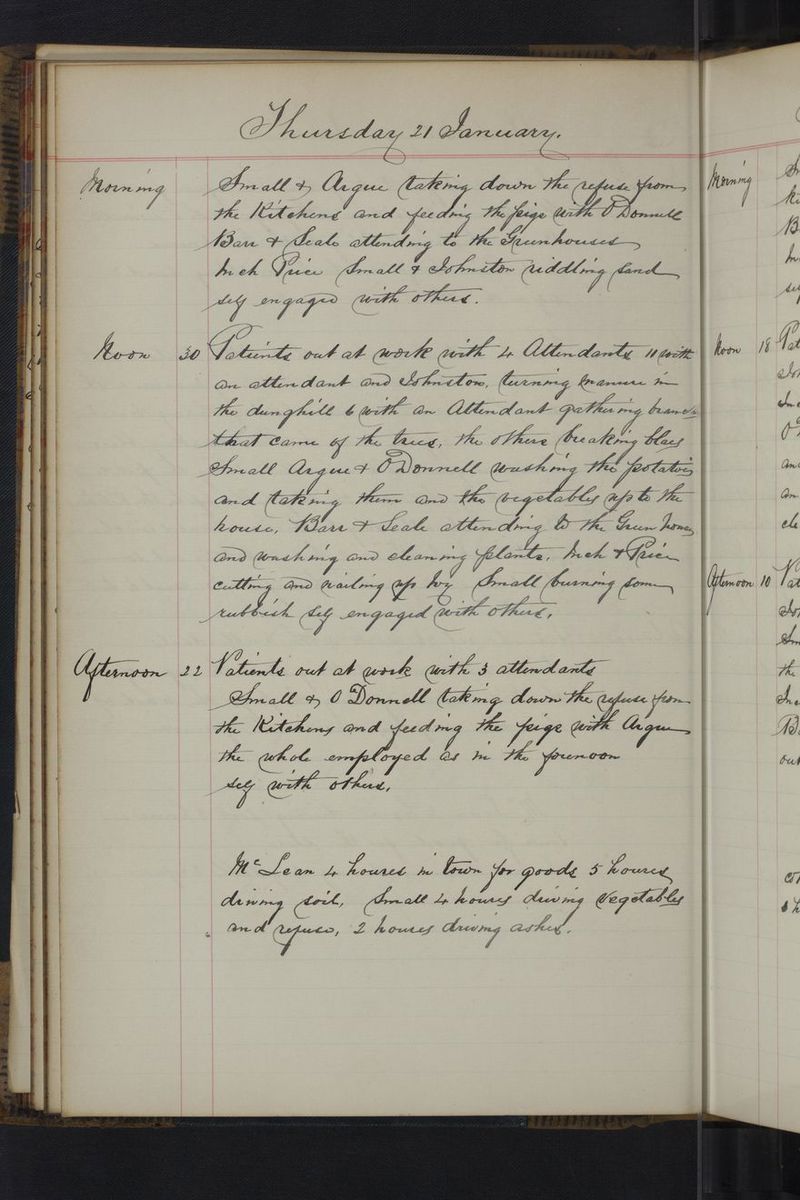 Thursday 21 January.
Morning Small & Argue taking down the refuse from
the Kitchens and feeding the pigs with O'Donnell
Barr & Seale attending to the Greenhouses
Inch Price Small & Johnston riddling sand
self engaged with others.
Noon 30 Patients out at work with 4 Attendants 11 with
an attendant and Johnston, turning manure in
the dunghill 6 with an Attendant gathering
that came of the trees, the others breaking
Small Argue & O'Donnell washing the potatoes
and taking them and the vegetables up to the
house, Barr & Seale attending to the Green houses
and washing and cleaning plants. Inch & Price
cutting and nailing up Ivy Small burning some
rubbish self engaged with others.
Afternoon 22 Patients out at work with 3 attendants
Small & O Donnell taking down the refuse from
the Kitchens and feeding the pigs with Argue
the whole employed as in the forenoon
self with others.
McLean 4 houres in town for goods 5 houres
driving soil, Small 4 houres driving vegetables
and refuse, 2 houres driving ashes.
Morning
Noon 18
Afternoon 10